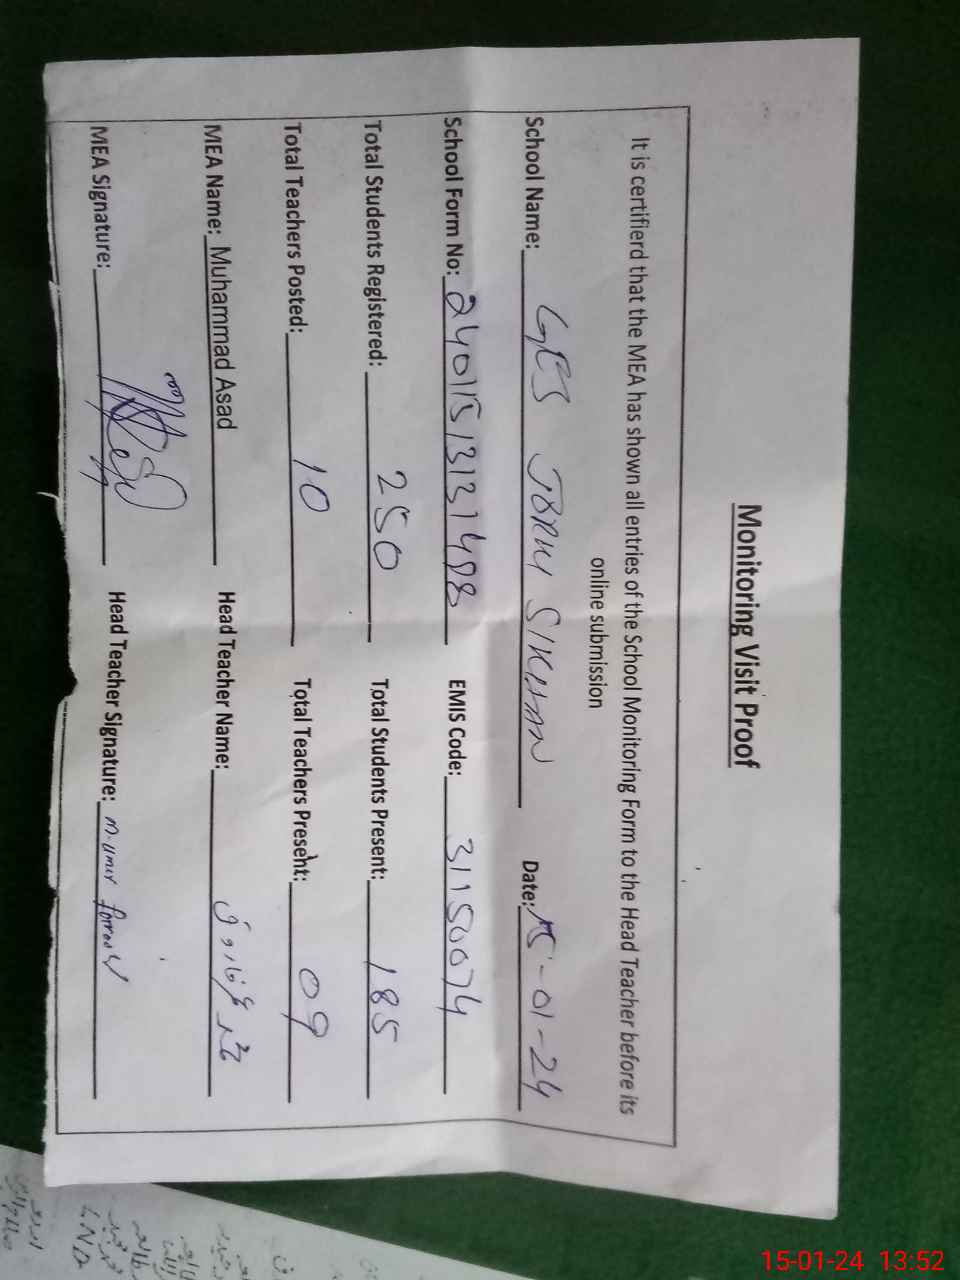 Monitoring Visit Proof
It is certifierd that the MEA has shown all entries of the School Monitoring Form to the Head Teacher before its
online submission
School Name: GES Date: 15-01-24
School Form No: 24011513131498 EMIS Code: 31150074
Total Students Registered: 250 Total Students Present: 185
Total Teachers Posted: 10 Total Teachers Present: 09
MEA Name: Muhammad Asad Head Teacher Name: محمد عمر فاروق
MEA Signature: Head Teacher Signature: M. Umer Farooq
LND
15-01-24 13:52